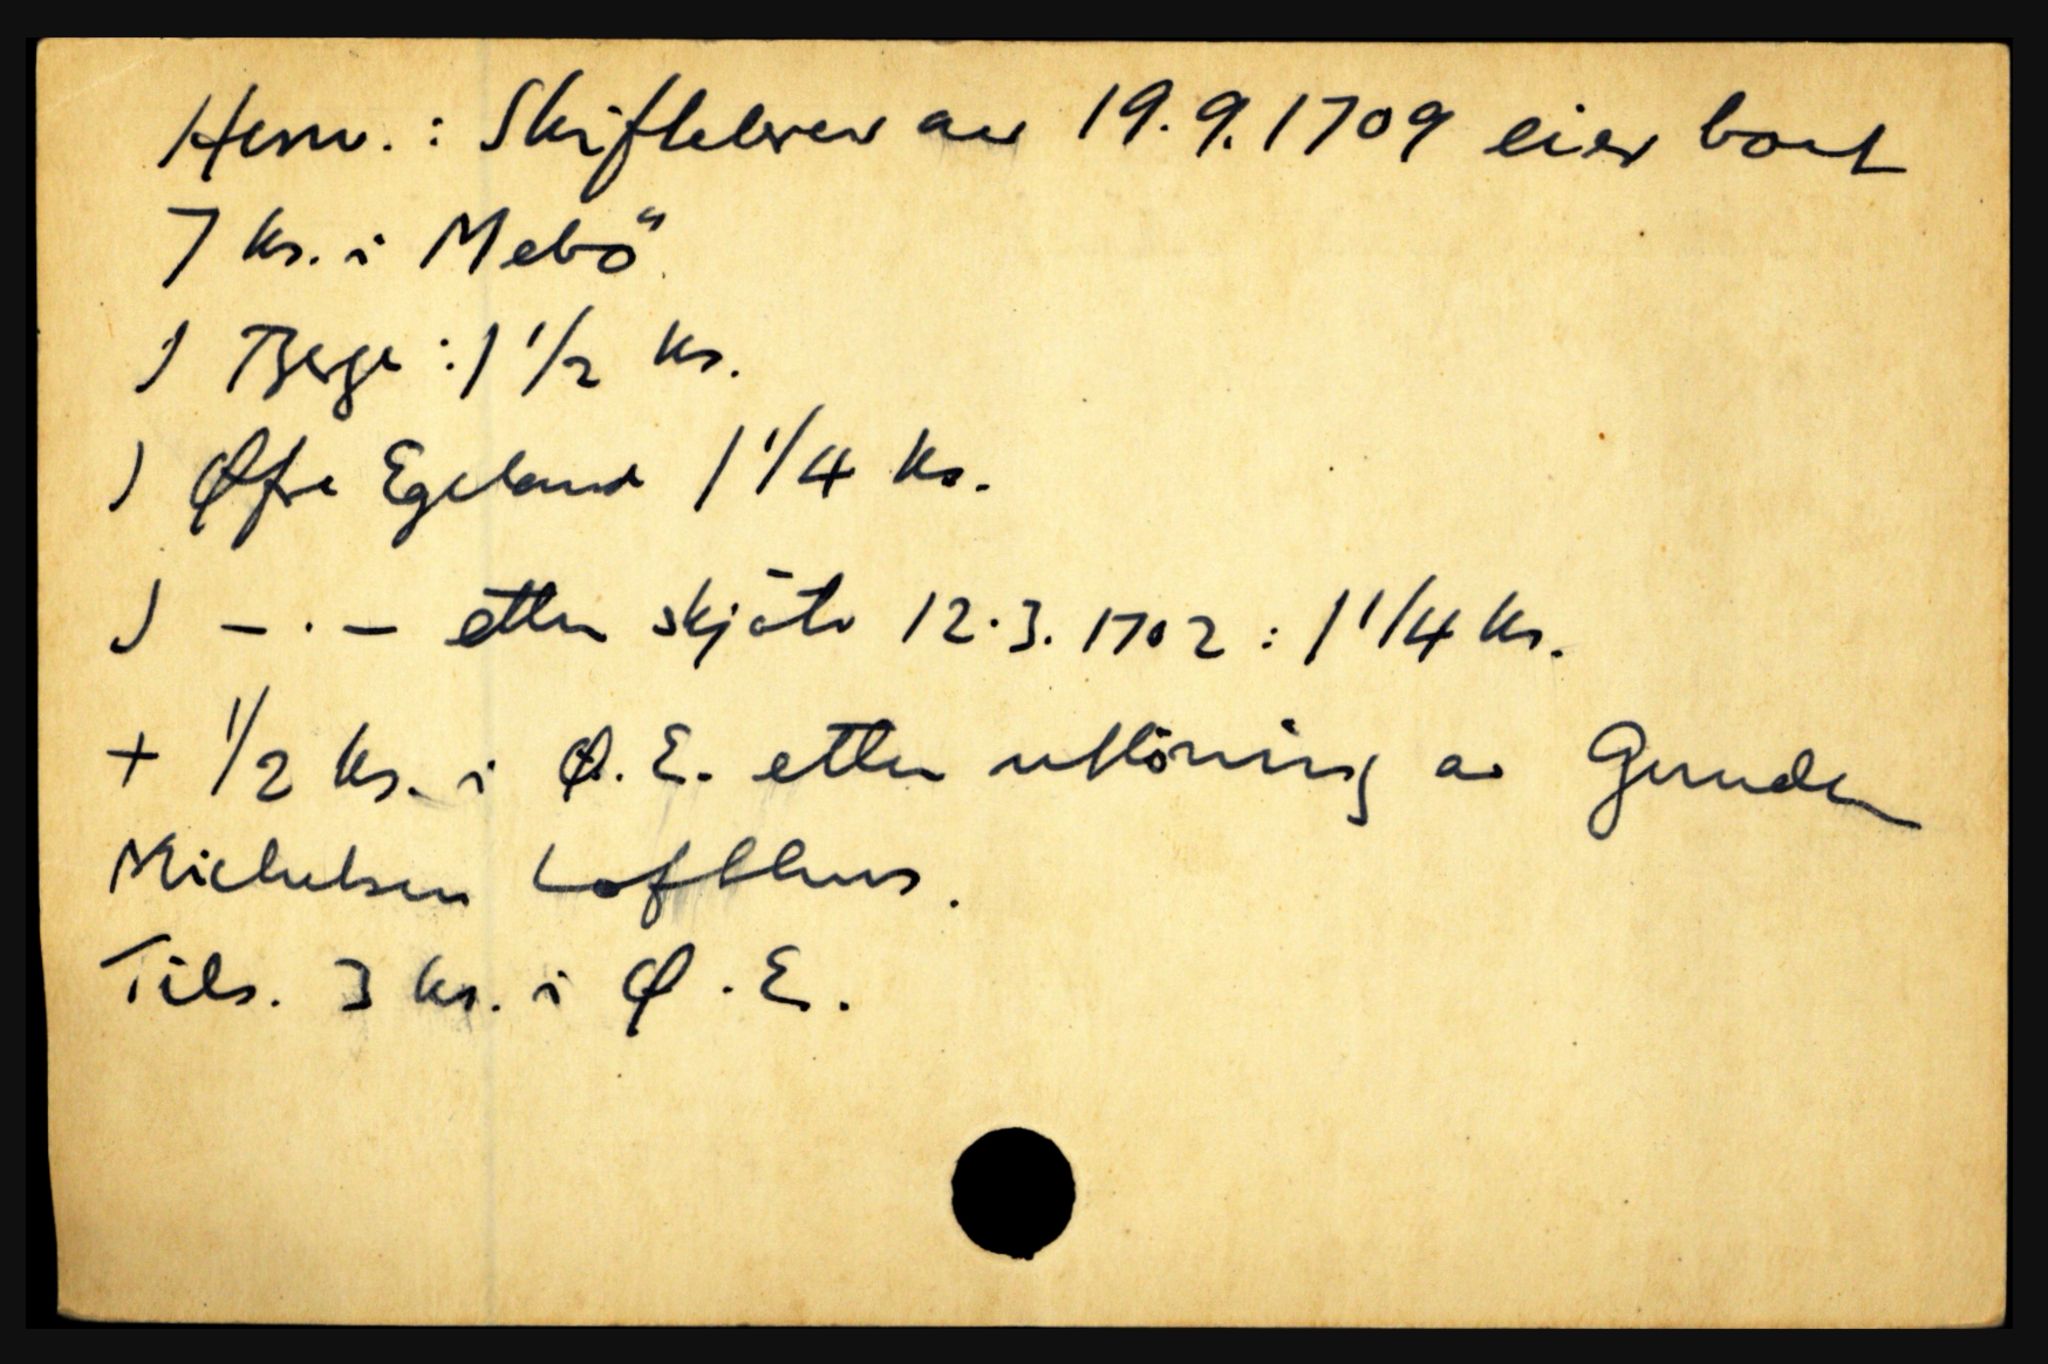 Henv.: Skiftebrev av 19.9.1709 eier boet
7 ks. i Mebö
) Berge : 1 1/2 ks.
) Øfre Egeland 1 1/4 ks.
) – . – etter skjöte 12.3.1702 : 1 1/4 ks.
+ 1/2 ks. i Ø.E. etter utlösning av Gunder
Michelsen Lofthus.
Tils. 3 ks. i Ø.E.